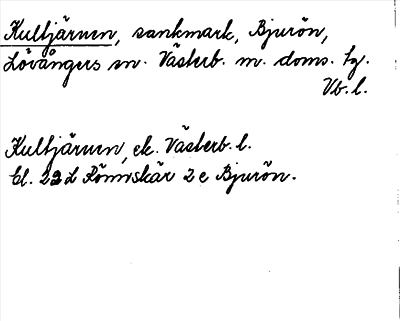 Kultjärnen, sankmark, Bjurön,
Lövångers sn. Västerb. m. doms. tg.
Vb. l.
Kultjärnen, ek. Västerb. l.
bl. 22 L Rönnskär 2 e Bjurön.